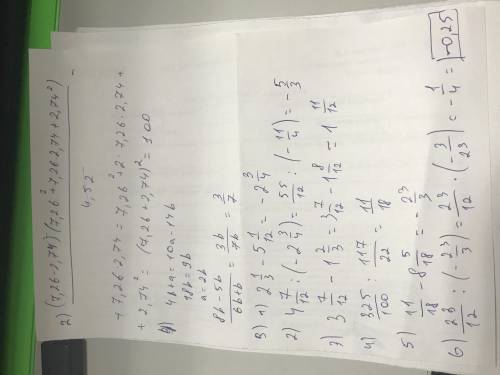 2) (7,26-2,74)(7,26²+7,26·2,74+2,74²) -
4,52
+ 7,26·2,74 = 7,26²+2·7,26·2,74+
+ 2,74² = (7,26+2,74)² = 100
4b+a=10a-14b
18b=9b
a=2b
8b-5b 3b/7b = 3/7
6b+b
3) 1) 2 1/3 - 5 1/12 = -2 3/4
2) 4 7/12 : (-2 3/4) = 55/12 : (-11/4) = -5/3
3 7/12 - 1 2/3 = 3 7/12 - 1 8/12 = 1 11/12
4) 325/100 : 117/22 = 11/18
5) 11/18 - 8 5/18 = -23/3
6) 23/12 : (-23/3) = 23/12 · (-3/23) = -1/4 = -0,25